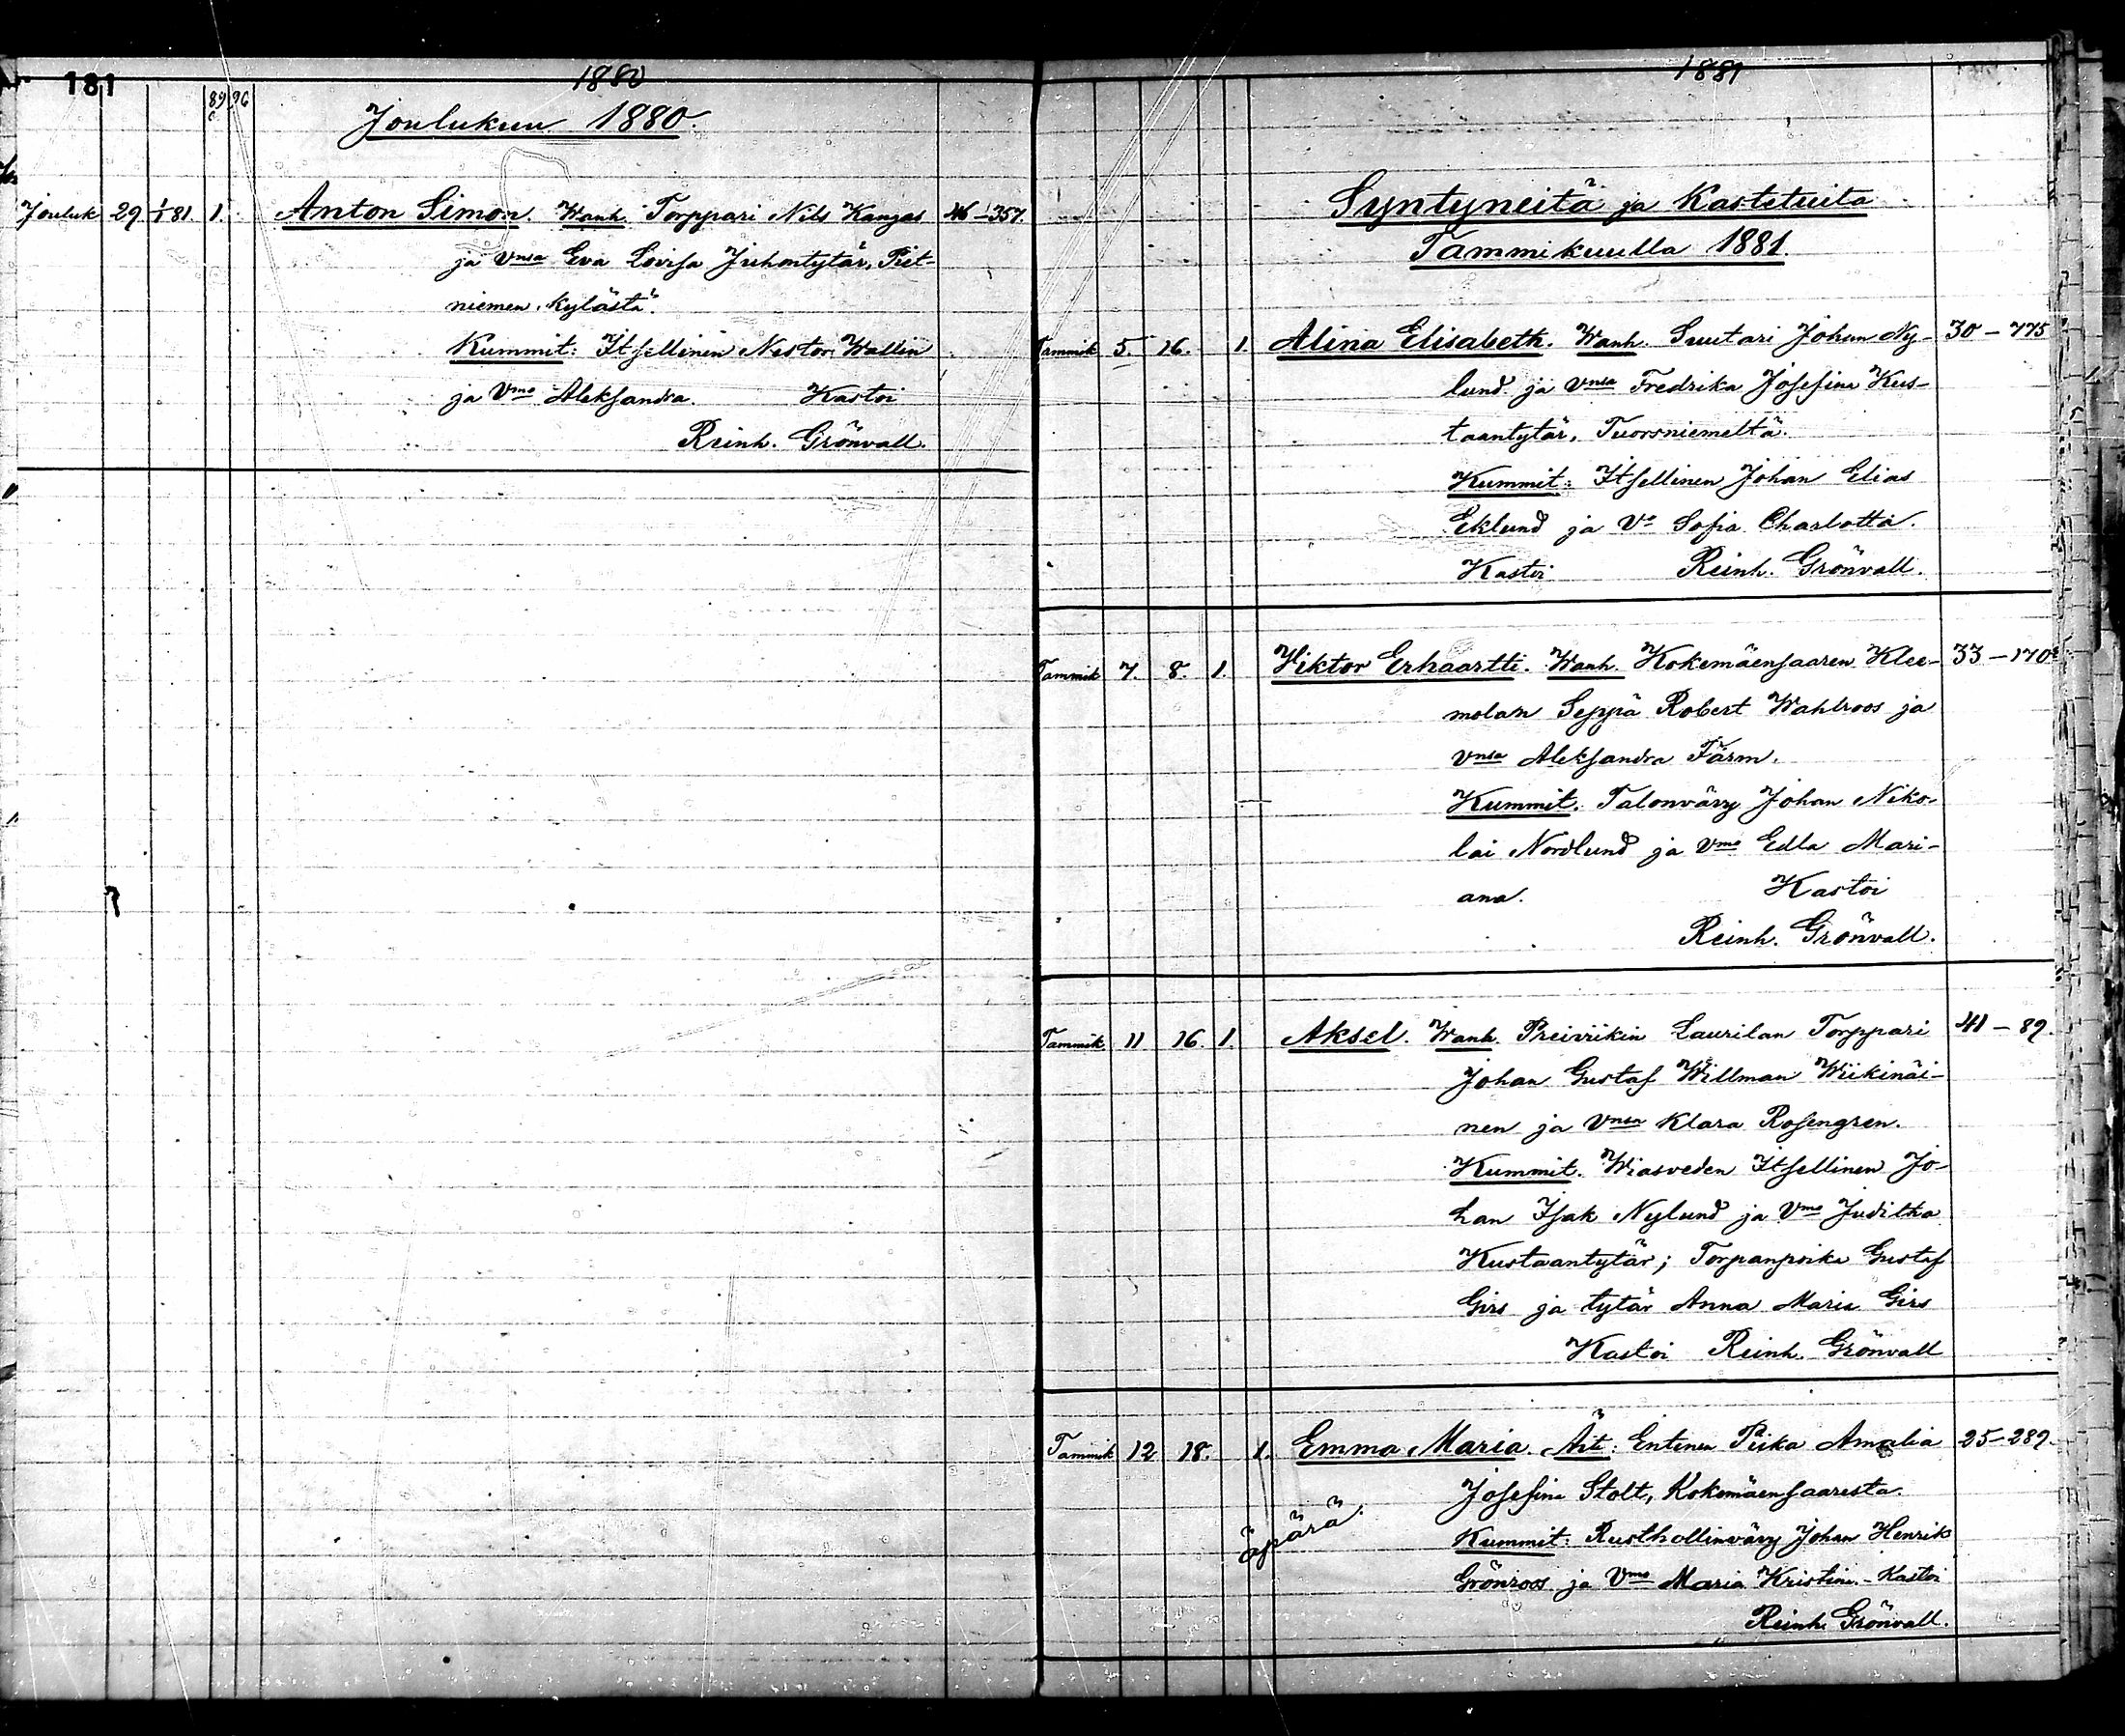 181
1880
89 96
Joulukuu 1880.
Jouluk 29. 1/1 81 1. Anton Simon. Wanh. Torppari Nils Kangas 46-357.
ja vnsa Eva Lovisa Juhontytär, Piet-
niemen kylästä.
Kummit: Itsellinen Nestor Wallin
ja Vmo Aleksandra. Kastoi
Reinh. Grönvall.
1881
Syntyneitä ja Kastetuita
Tammikuulla 1881.
Tammik 5. 16. 1. Alina Elisabeth. Wanh. Suutari Johan Ny- 30-775
lund ja vnsa Fredrika Josefina Kus-
taantytär, Tuorsniemeltä.
Kummit: Itsellinen Johan Elias
Eklund ja Vo Sofia Charlotta.
Kastoi Reinh. Grönvall.
Tammik 7. 8. 1. Viktor Erhaartti. Wanh. Kokemäensaaren Klee- 33-170
molan Seppä Robert Wahlroos ja
vnsa Aleksandra Färm.
Kummit. Talonväry Johan Niko-
lai Nordlund ja Vmo Edla Mari-
ana. Kastoi
Reinh. Grönvall.
Tammik. 11 16. 1. Aksel. Wanh. Preiviikin Laurilan Torppari 41-89.
Johan Gustaf Willman Wiikinäi-
nen ja Vnsa Klara Rosengren.
Kummit. Wiasveden Itsellinen Jo-
han Isak Nylund ja Vmo Juditha
Kustaantytär; Torpanpoika Gustaf
Girs ja tytär Anna Maria Girs
Kastoi Reinh. Grönvall
Tammik 12 18. 1. Emma Maria. Äiti: Entinen Piika Amalia 25-289.
Josefina Stolt, Kokemäensaaresta.
äpärä.
Kummit: Rusthollinväry Johan Henrik
Grönroos ja Vmo Maria Kristina. - Kastoi
Reinh. Grönvall.